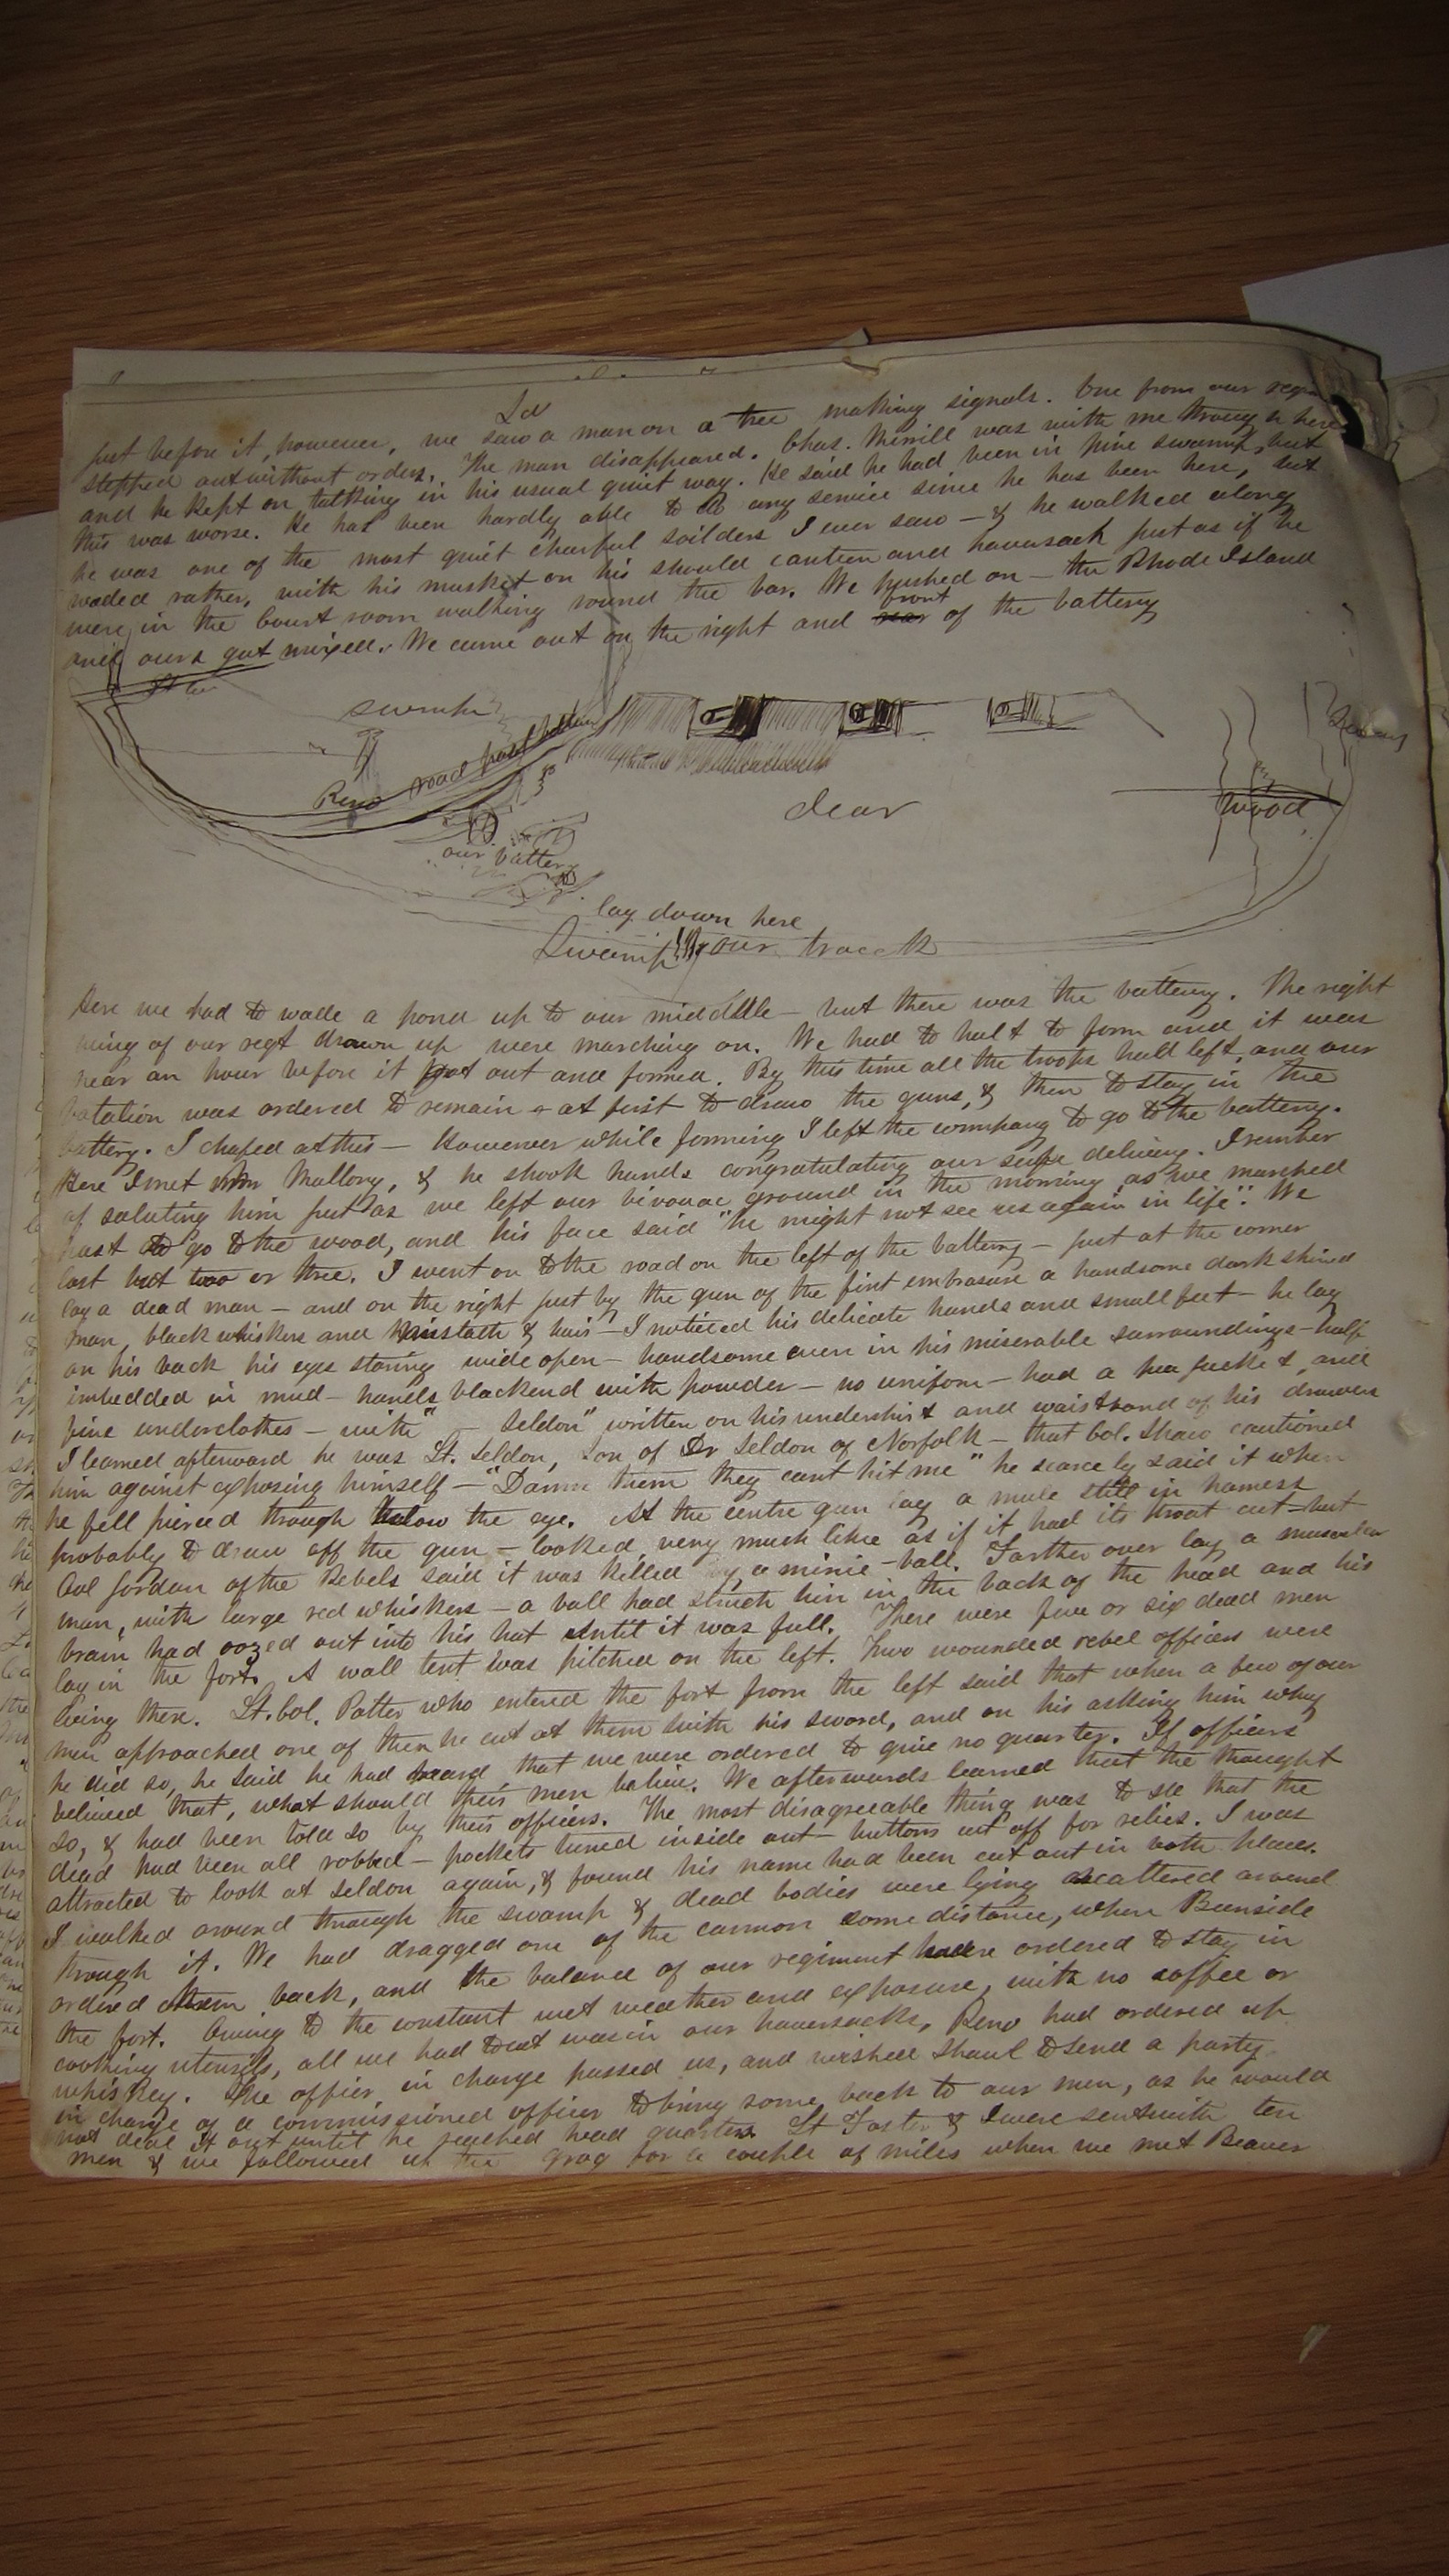 2d
just before it, however, we saw a man on a tree making signals. One from our regt
stepped out without orders. The man disappeared. Chas. Merrill was with me through here
and he kept on talking in his usual quiet way. He said he had been in pine swamp, but
this was worse. He has been hardly able to do any service since he has been here, but
he was one of the most quiet cheerful soilders I ever saw — & he walked along
waded rather, with his musket on his should canteen and haversack just as if he
were in the Court room walking round the bar. We pushed on — the Rhode Island
and ours got mixed. We came out on the right and rear front of the battery
swamp
Reno road
our battery
clear
wood
lay down here
Swamp our track
Here we had to wade a pond up to our middle — but there was the battery. The right
wing of our regt drawn up were marching on. We had to halt to form and it was
near an hour before it got out and formed. By this time all the troops had left, and our
batalion was ordered to remain — at first to draw the guns, & then to stay in the
battery. I chafed at this — However while forming I left the company to go to the battery.
Here I met Mallory, & he shook hands congratulating our safe delivery. I rember
of saluting him just as we left our bivouac ground in the morning as we marched
past to go to the wood, and his face said "he might not see us again in life". We
lost but two or three. I went on to the road on the left of the battery — just at the corner
lay a dead man — and on the right just by the gun of the first embrasure a handsome dark skined
man, black whiskers and mustach & hair — I noticed his delicate hands and small feet — he lay
on his back his eyes staring wide open — handsome even in his miserable surroundings — half
imbedded in mud — hands blackend with powder — no uniform — had a pea jacket, and
fine underclothes — with " — Seldon" written on his undershirt and waistband of his drawers
I learned afterward he was Lt. Seldon, Son of Dr Seldon of Norfolk — that Col. Shaw cautioned
him against exposing himself — "Damn them they cant hit me" he scarcely said it when
he fell pierced through below the eye. At the centre gun lay a mule still in harness
probably to draw off the gun — looked very much like as if it had its throat cut — but
Col Jordan of the Rebels said it was killed by a minie-ball. Farther over lay a muscular
man, with large red whiskers — a ball had struck him in the back of the head and his
brain had oozed out into his hat until it was full. There were five or six dead men
lay in the fort. A wall tent was pitched on the left. Two wounded rebel officers were
lying there. Lt. Col. Potter who entered the fort from the left said that when a few of our
men approached one of them he cut at them with his sword, and on his asking him why
he did so, he said he had heard that we were ordered to give no quarter. If officers
believed that, what should their men believe. We afterwards learned that the thought
so, & had been told so by their officers. The most disagreeable thing was to see that the
dead had been all robbed — pockets turned inside out — buttons cut off for relics. I was
attracted to look at Seldon again, & found his name had been cut out in both places.
I walked around through the swamp & dead bodies were lying scattered around
through it. We had dragged one of the cannon some distance, when Burnside
ordered them back, and the balance of our regiment were ordered to stay in
the fort. Owing to the constant wet weather and exposure, with no coffee or
cooking utensils, all we had to eat was in our haversacks, Reno had ordered up
whiskey. The officer in charge passed us, and wished Shaul to send a party
in charge of a commissioned officer to bring some back to our men, as he would
not deal it out until he reached head quarters. Lt Foster & I were sent with ten
men & we followed up the grog for a couple of miles when we met Beaver